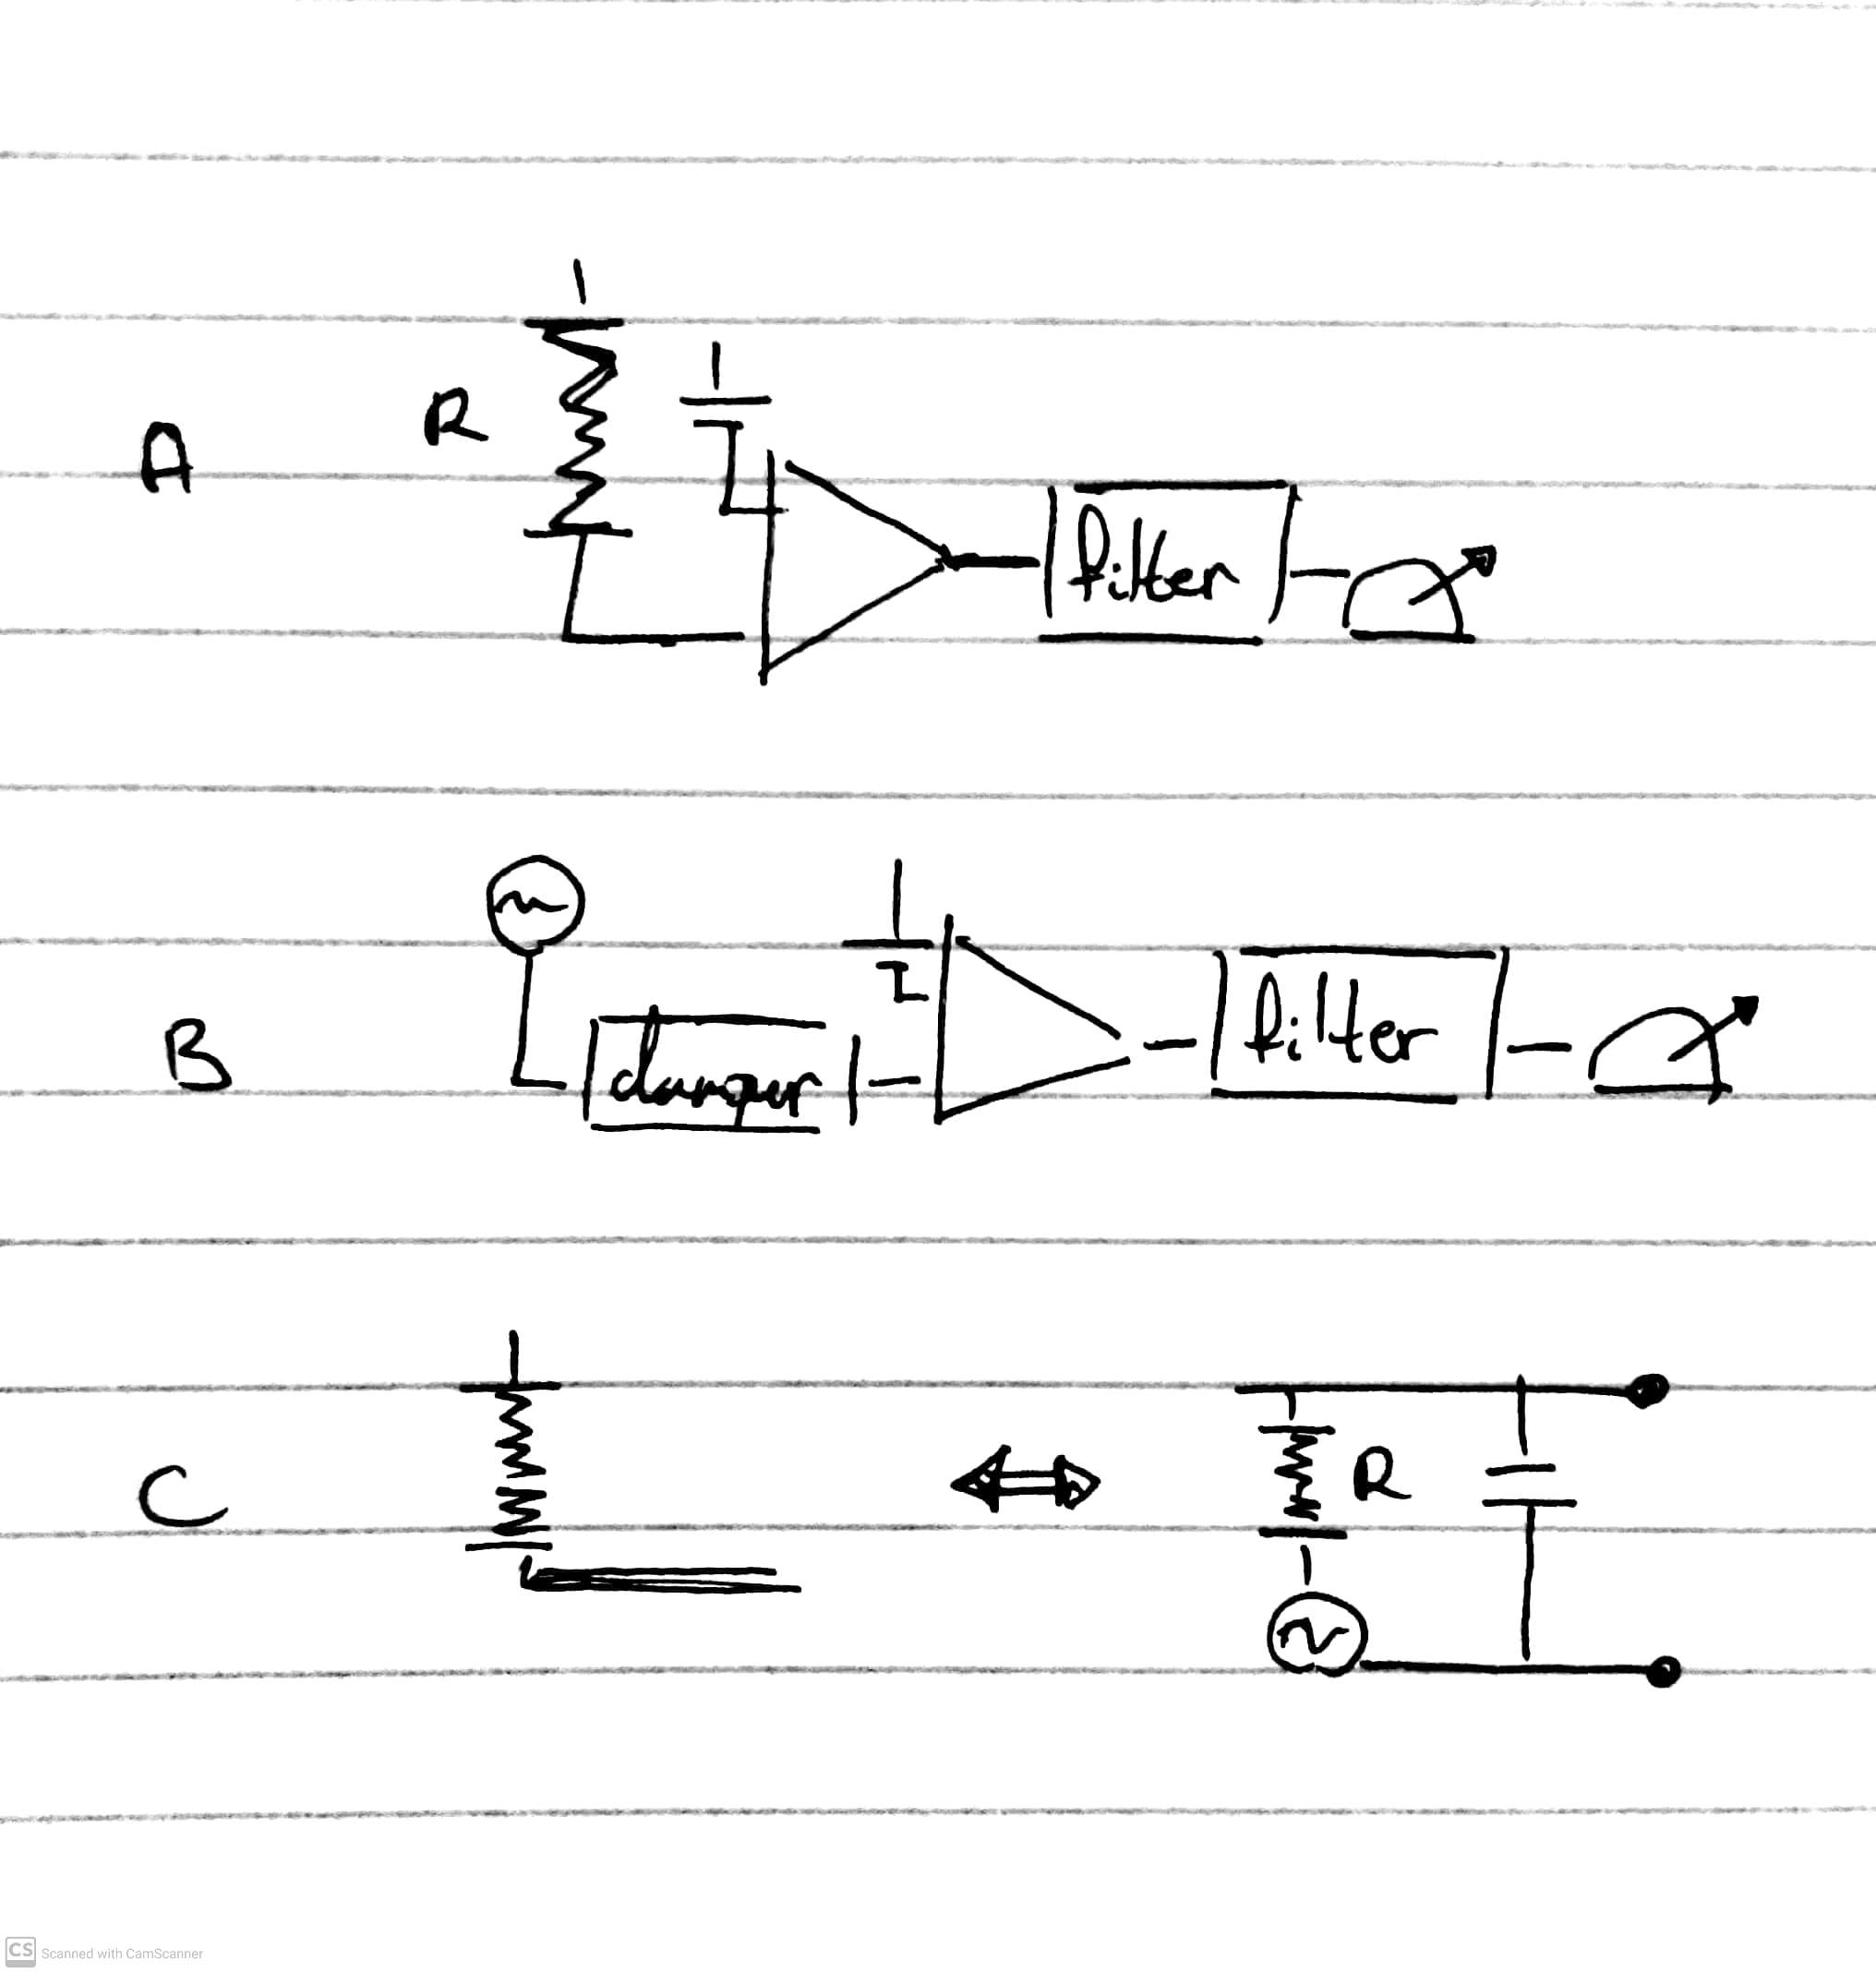 R
A
filter
B
damper
filter
C
R
CS Scanned with CamScanner